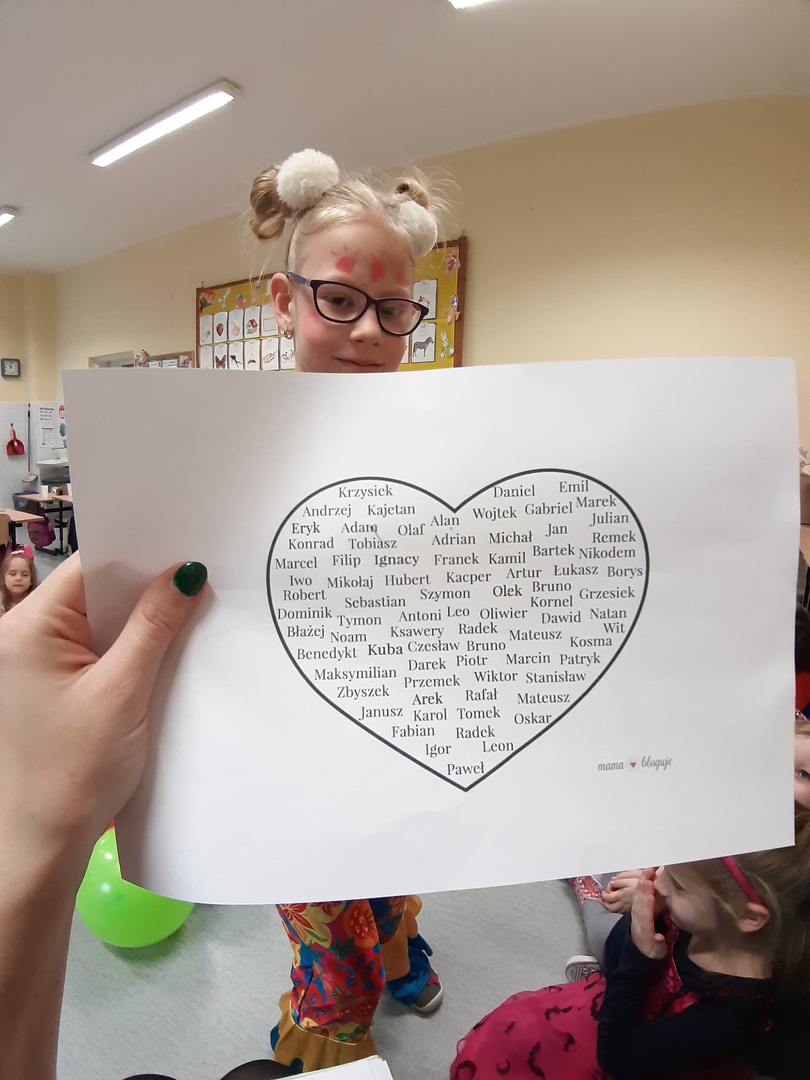 Krzysiek Daniel Emil
Andrzej Kajetan Alan Wojtek Gabriel Marek
Eryk Adam Olaf Julian
Konrad Tobiasz Adrian Michał Jan Remek
Marcel Filip Ignacy Franek Kamil Bartek Nikodem
Iwo Mikołaj Hubert Kacper Artur Łukasz Borys
Robert Sebastian Szymon Olek Bruno Grzesiek
Dominik Tymon Antoni Leo Oliwier Kornel Dawid Natan
Błażej Noam Ksawery Radek Mateusz Wit
Benedykt Kuba Czesław Bruno Kosma
Maksymilian Darek Piotr Marcin Patryk
Zbyszek Przemek Wiktor Stanisław
Arek Rafał Mateusz
Janusz Karol Tomek Oskar
Fabian Radek
Igor Leon
Paweł
mama bloguje